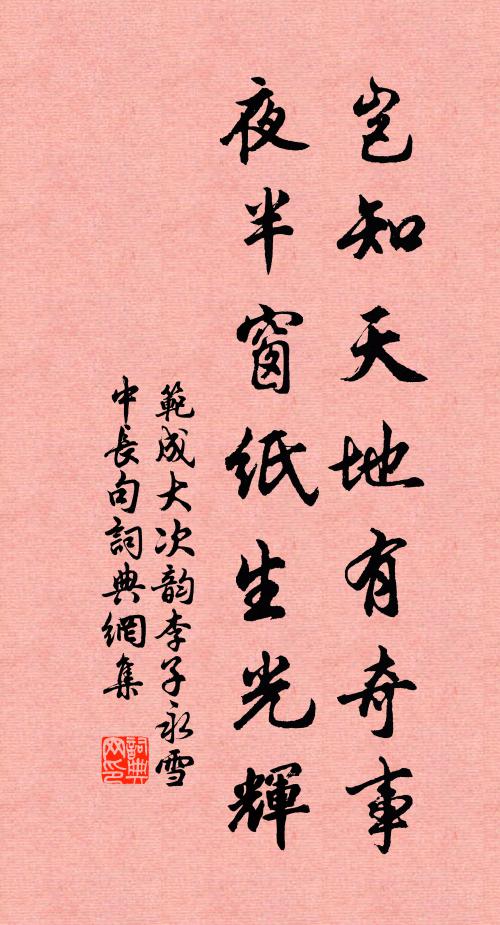 岂知天地有奇事
夜半窗纸生光輝
範成大次韵李子永雪
中長句詞典網集
詞典网印